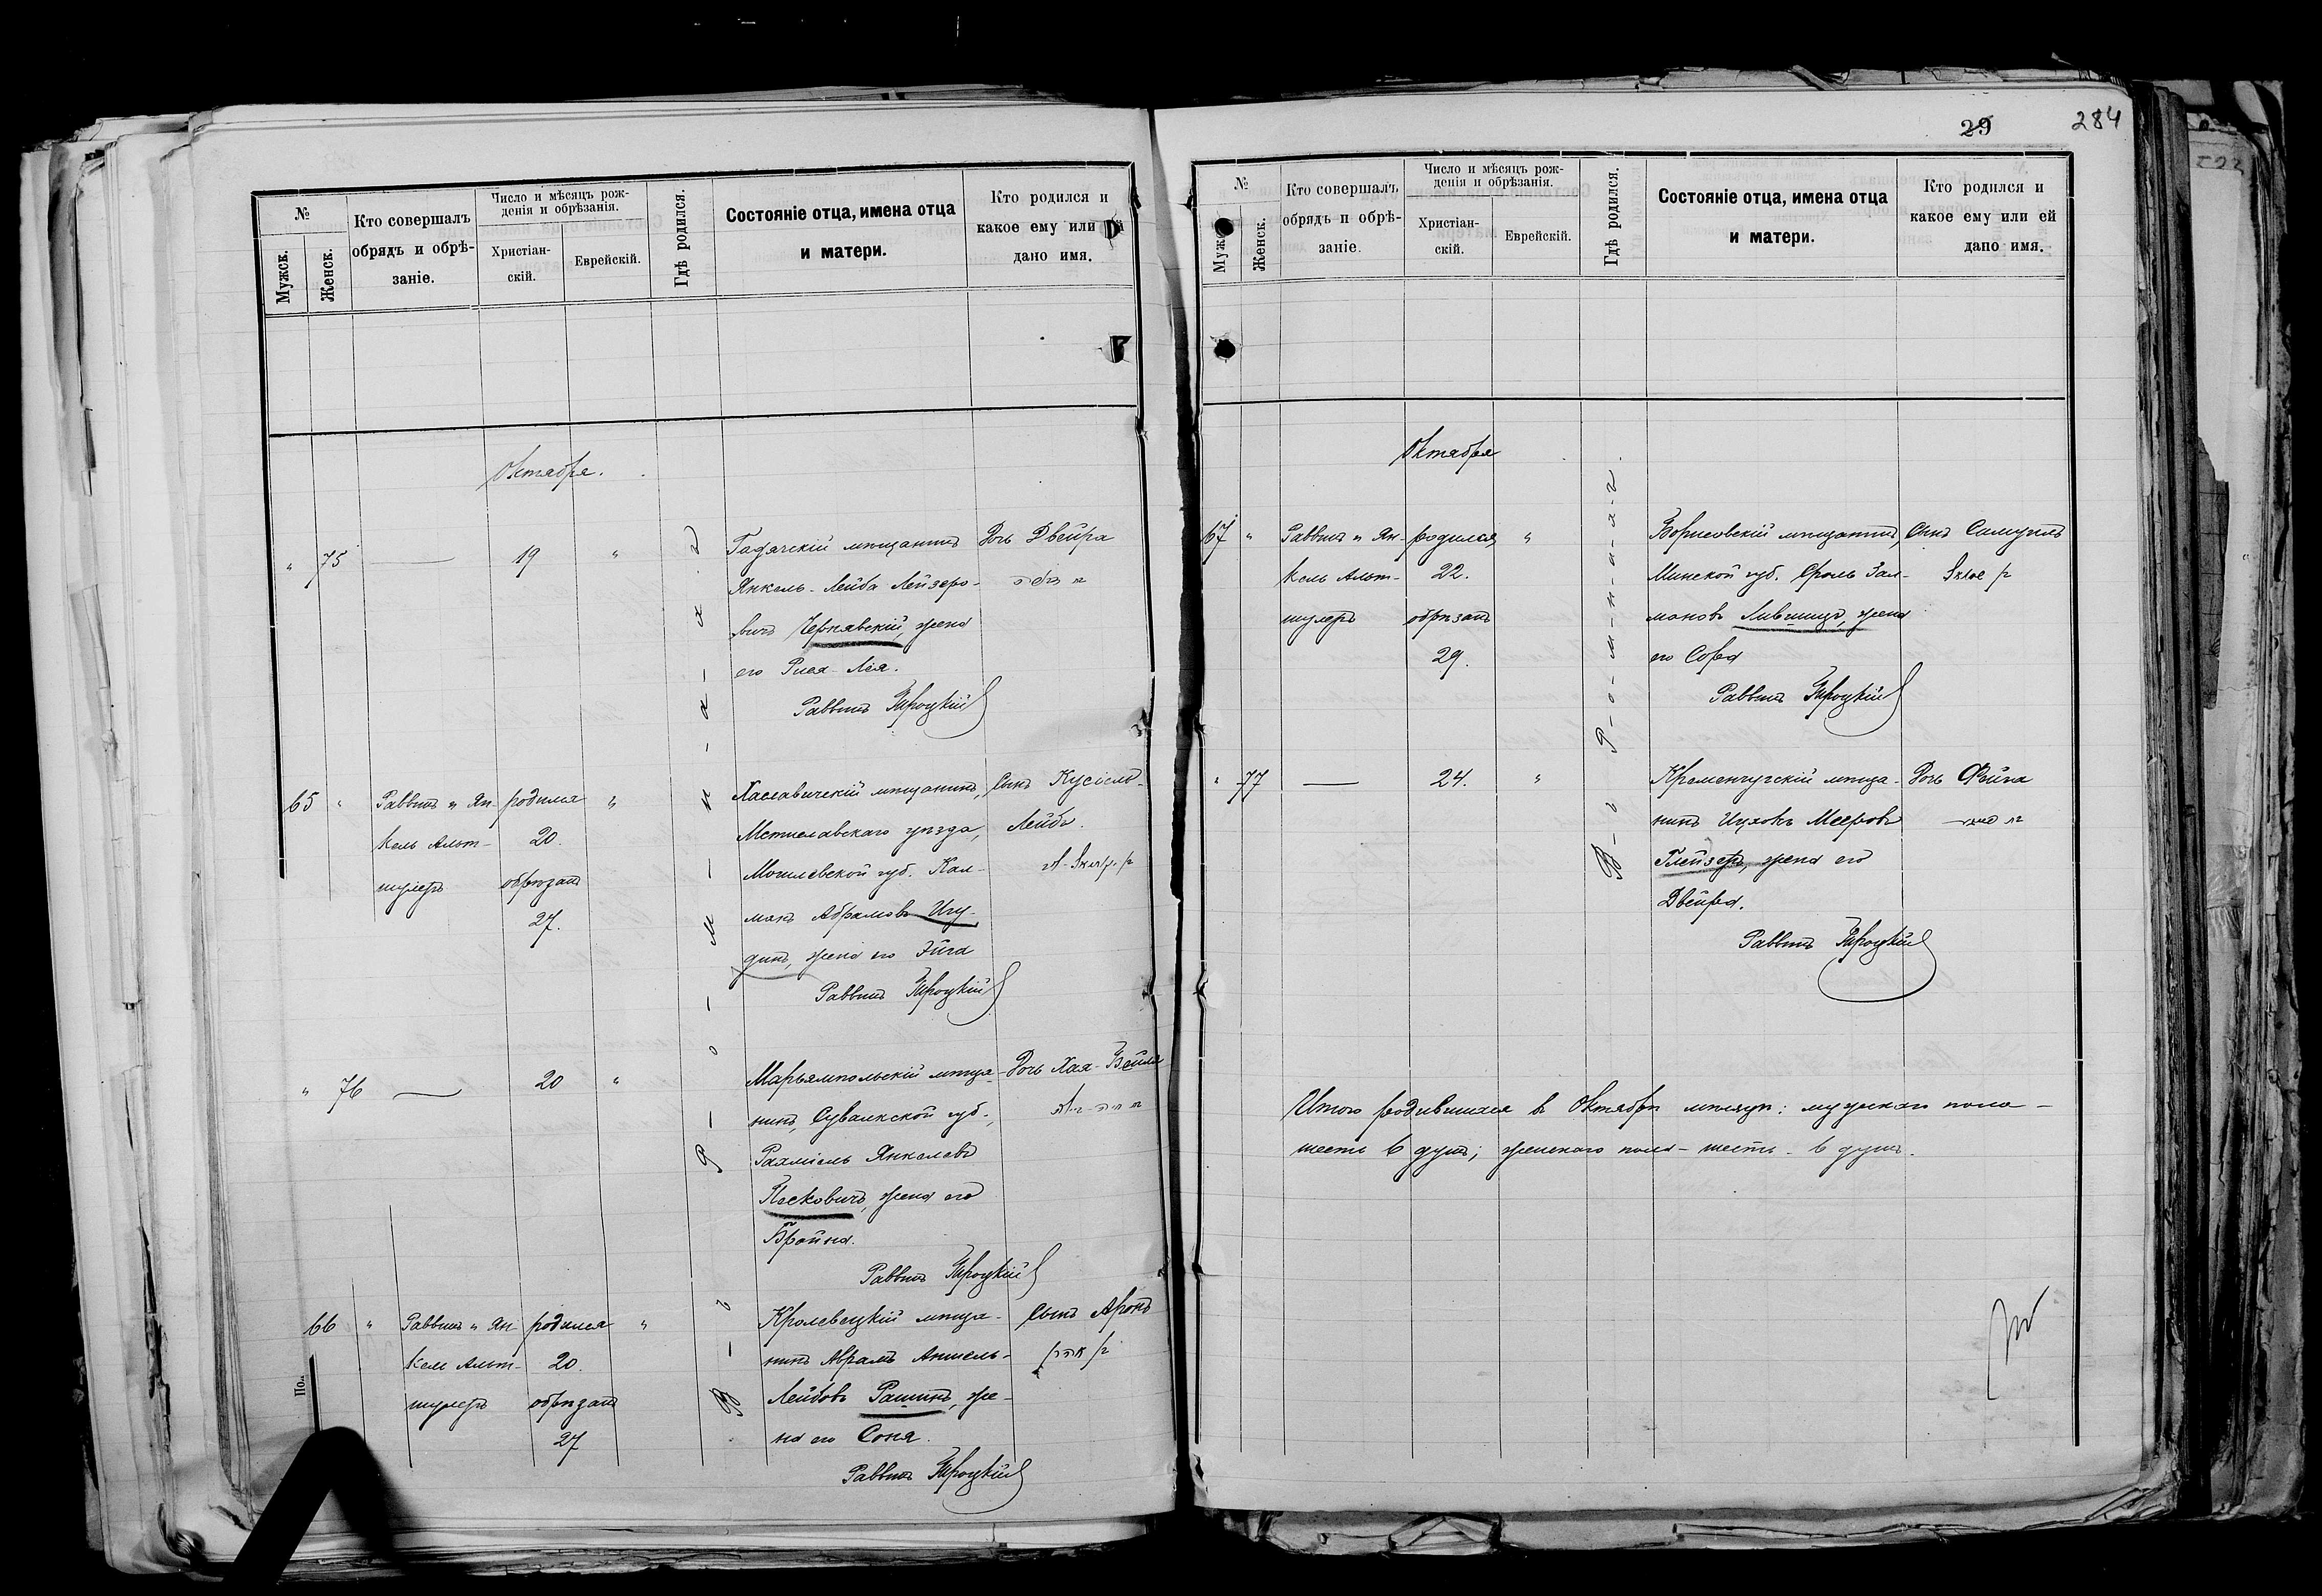 29
284
№
Мужск.
Женск.
Кто совершалъ
обрядъ и обрѣ-
заніе.
Число и мѣсяцъ рож-
денія и обрѣзанія.
Христіан-
скій.
Еврейскій.
Гдѣ родился.
Состояніе отца, имена отца
и матери.
Кто родился и
какое ему или
дано имя.
Октября.
" 75 — 19 "
Гадячскій мѣщанинъ
Янкель-Лейба Лейзеро-
вичъ Чернявскій, жена
его Рися-Лея.
Раввинъ
Дочь Двейра
65 "
Раввинъ и Ян-
кель Альт-
шулеръ
родился "
20.
обрѣзанъ
27.
Хаславичскій мѣщанинъ,
Мстиславскаго уѣзда,
Могилевской губ. Кал-
манъ Абрамовъ Игу-
динъ, жена его Эйга
Раввинъ
Сынъ Кусіель-
Лейбъ.
" 76 — 20 "
Марьямпольскій мѣща-
нинъ, Сувалкской губ.,
Рахміель Янкелевъ
Пасковичъ, жена его
Брайна.
Раввинъ
Дочь Хая-Бейля
66 "
Раввинъ и Ян-
кель Альт-
шулеръ
родился "
20.
обрѣзанъ
27
Кролевецкій мѣща-
нинъ Абрамъ Аншель-
Лейбовъ Рашинъ, же-
на его Соня.
Раввинъ
Сынъ Аронъ
В-ъ Р-о-м-н-а-х-ъ
По
№
Мужск.
Женск.
Кто совершалъ
обрядъ и обрѣ-
заніе.
Число и мѣсяцъ рож-
денія и обрѣзанія.
Христіан-
скій.
Еврейскій.
Гдѣ родился.
Состояніе отца, имена отца
и матери.
Кто родился и
какое ему или ей
дано имя.
Октября
67 "
Раввинъ и Ян-
кель Альт-
шулеръ
родился "
22.
обрѣзанъ
29.
Борисовскій мѣщанинъ,
Минской губ. Сроль Зал-
мановъ Лившицъ, жена
его Сора
Раввинъ
Сынъ Самуилъ
" 77 — 24. "
Кременчугскій мѣща-
нинъ Ицхокъ Мееровъ
Глейзеръ, жена его
Двейра.
Раввинъ
Дочь Фейга
В-ъ Р-о-м-н-а-х-ъ
Итого родившихся въ Октябрѣ мѣсяцѣ: мужскаго пола -
шесть 6 душъ; женскаго пола - шесть - 6 душъ.